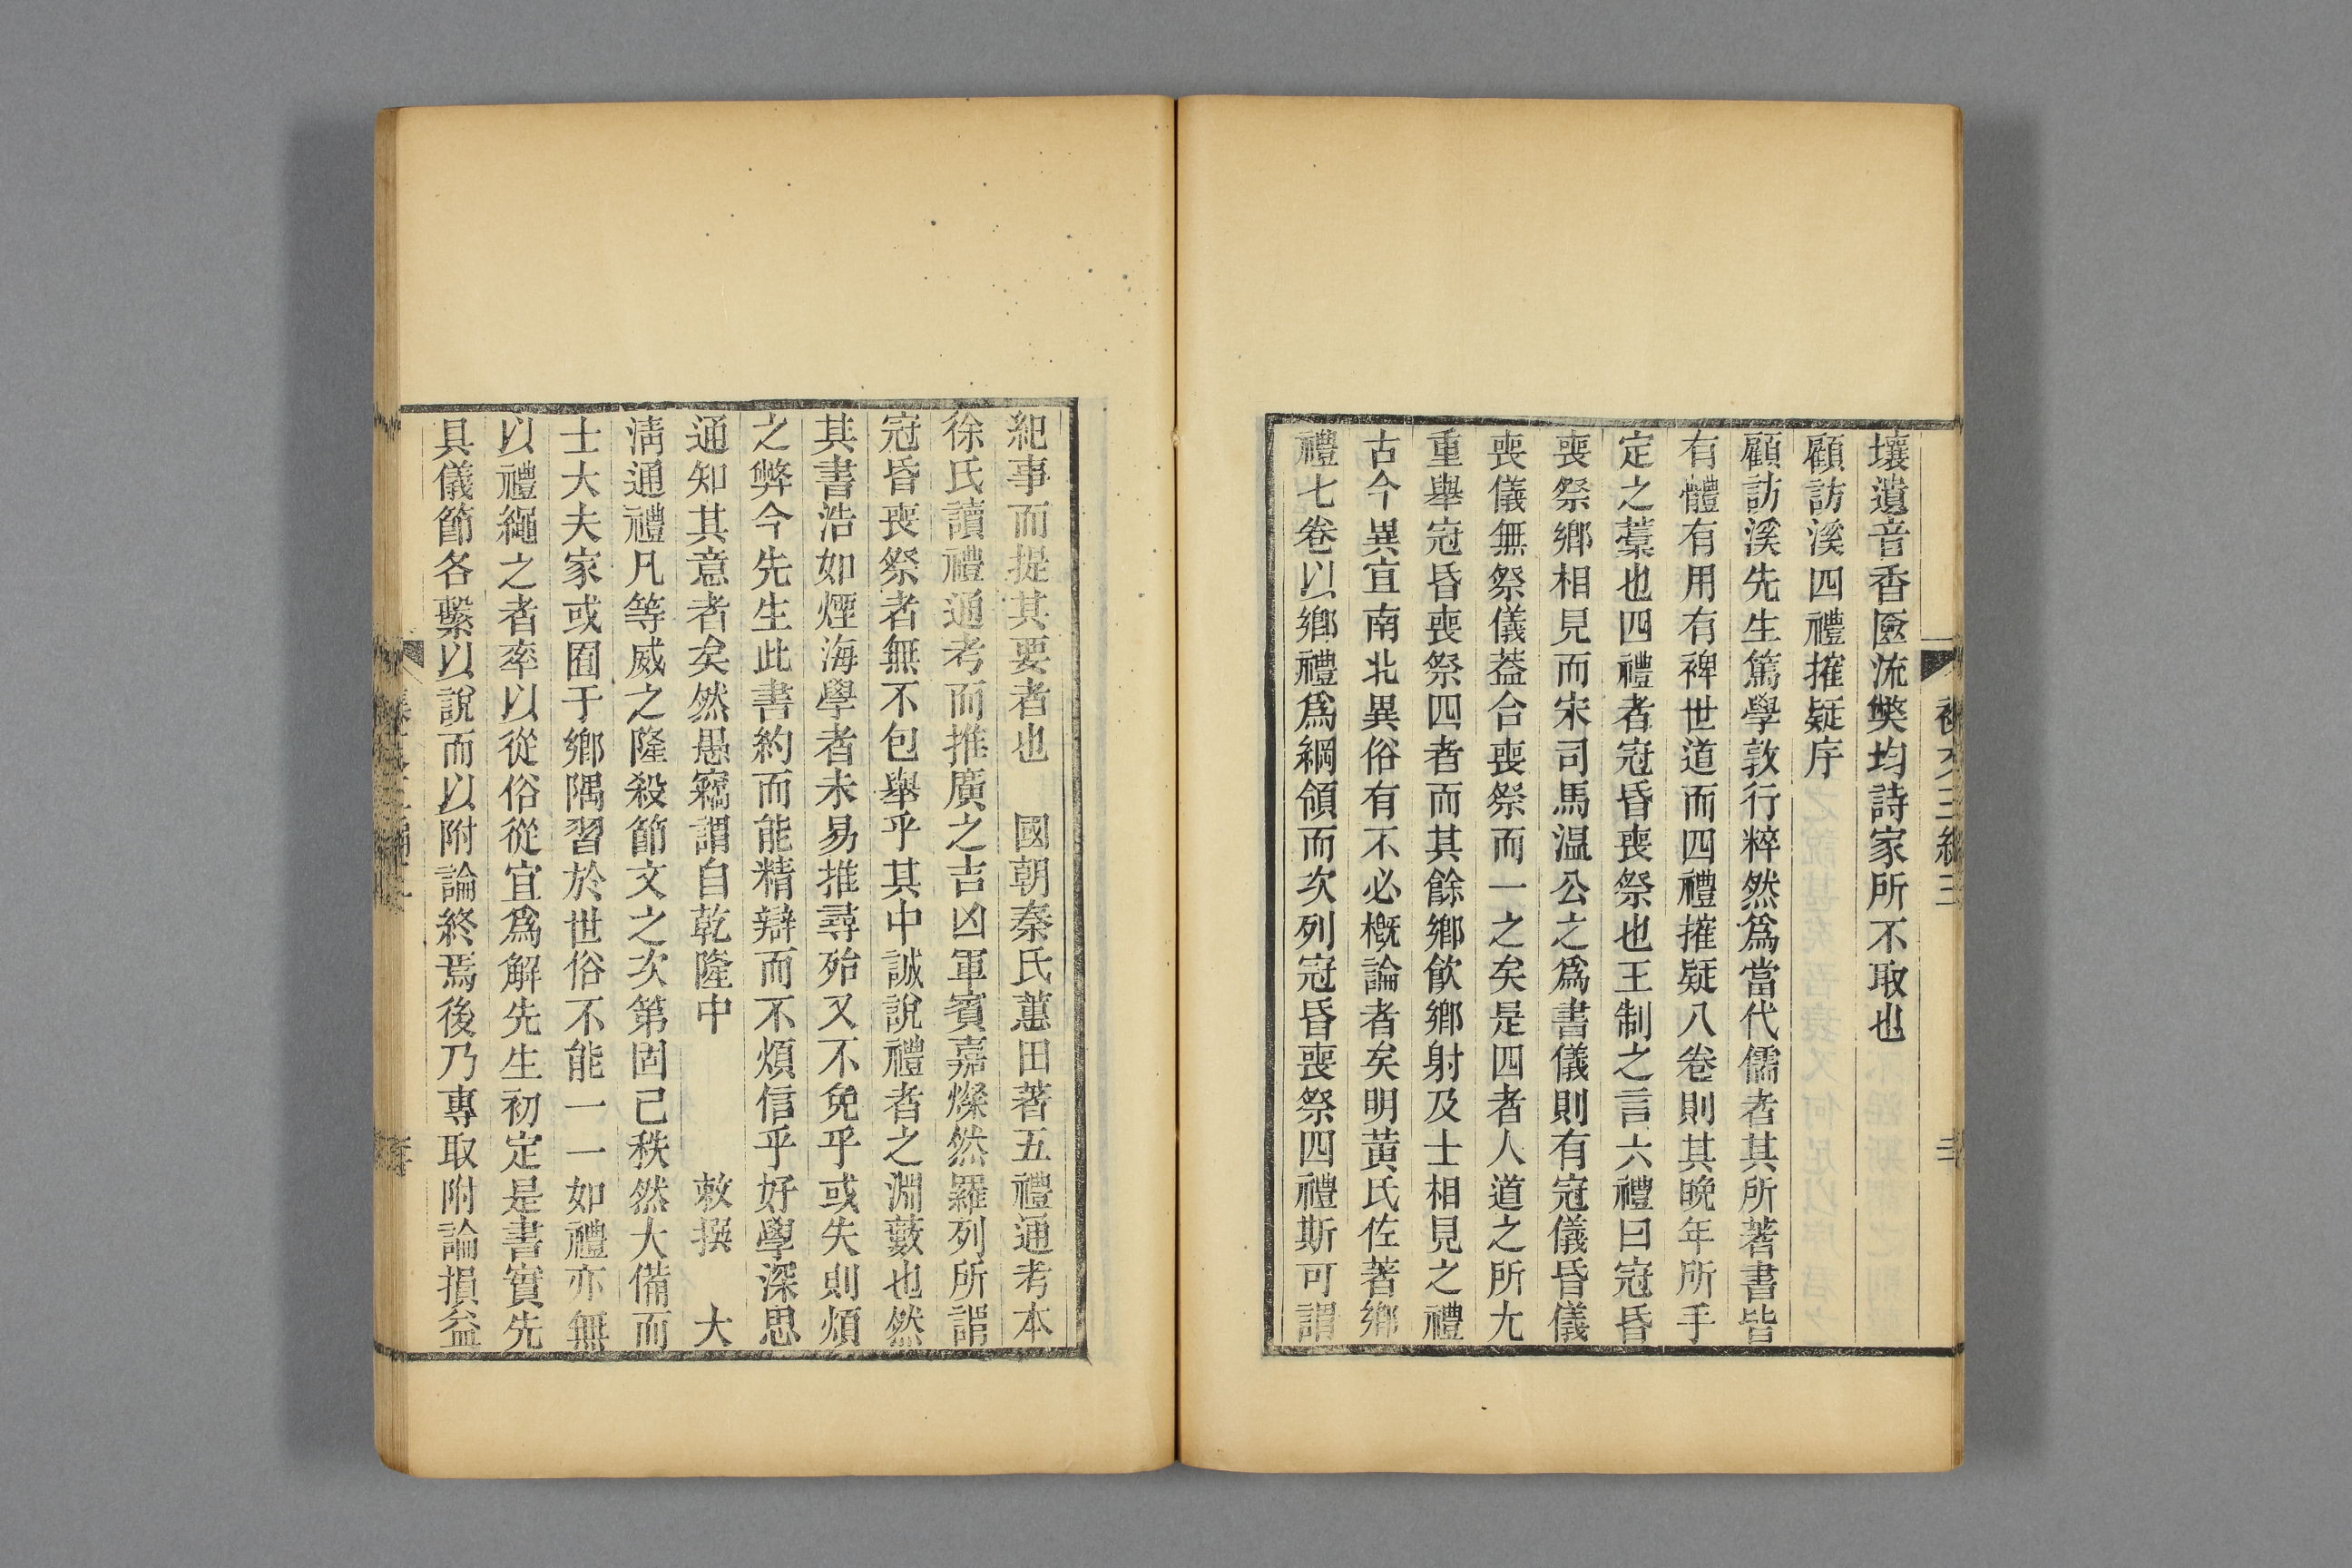 壤遺音香匳流獘均詩家所不取也
顧訪溪四禮搉疑序
顧訪溪先生篤學敦行粹然爲當代儒者其所著書皆
有體有用有裨世道而四禮搉疑八卷則其晚年所手
定之藁也四禮者冠昏喪祭也王制之言六禮曰冠昏
喪祭鄉相見而宋司馬温公之爲書儀則有冠儀昏儀
喪儀無祭儀葢合喪祭而一之矣是四者人道之所尢
重舉冠昏喪祭四者而其餘鄉飮鄉射及士相見之禮
古今異宜南北異俗有不必槪論者矣明黃氏佐著鄉
禮七卷以鄉禮爲綱領而次列冠昏喪祭四禮斯可謂
紀事而提其要者也　國朝秦氏蕙田著五禮通考本
徐氏讀禮通考而推廣之吉凶軍賓嘉燦然羅列所謂
冠昏喪祭者無不包舉乎其中誠說禮者之淵藪也然
其書浩如煙海學者未易推尋殆又不免乎或失則煩
之弊今先生此書約而能精辯而不煩信乎好學深思
通知其意者矣然愚竊謂自乾隆中　敕撰　大
淸通禮凡等威之隆殺節文之次第固已秩然大備而
士大夫家或囿于鄉隅習於世俗不能一一如禮亦無
以禮繩之者率以從俗從宜爲解先生初定是書實先
具儀節各繫以說而以附論終焉後乃專取附論損益